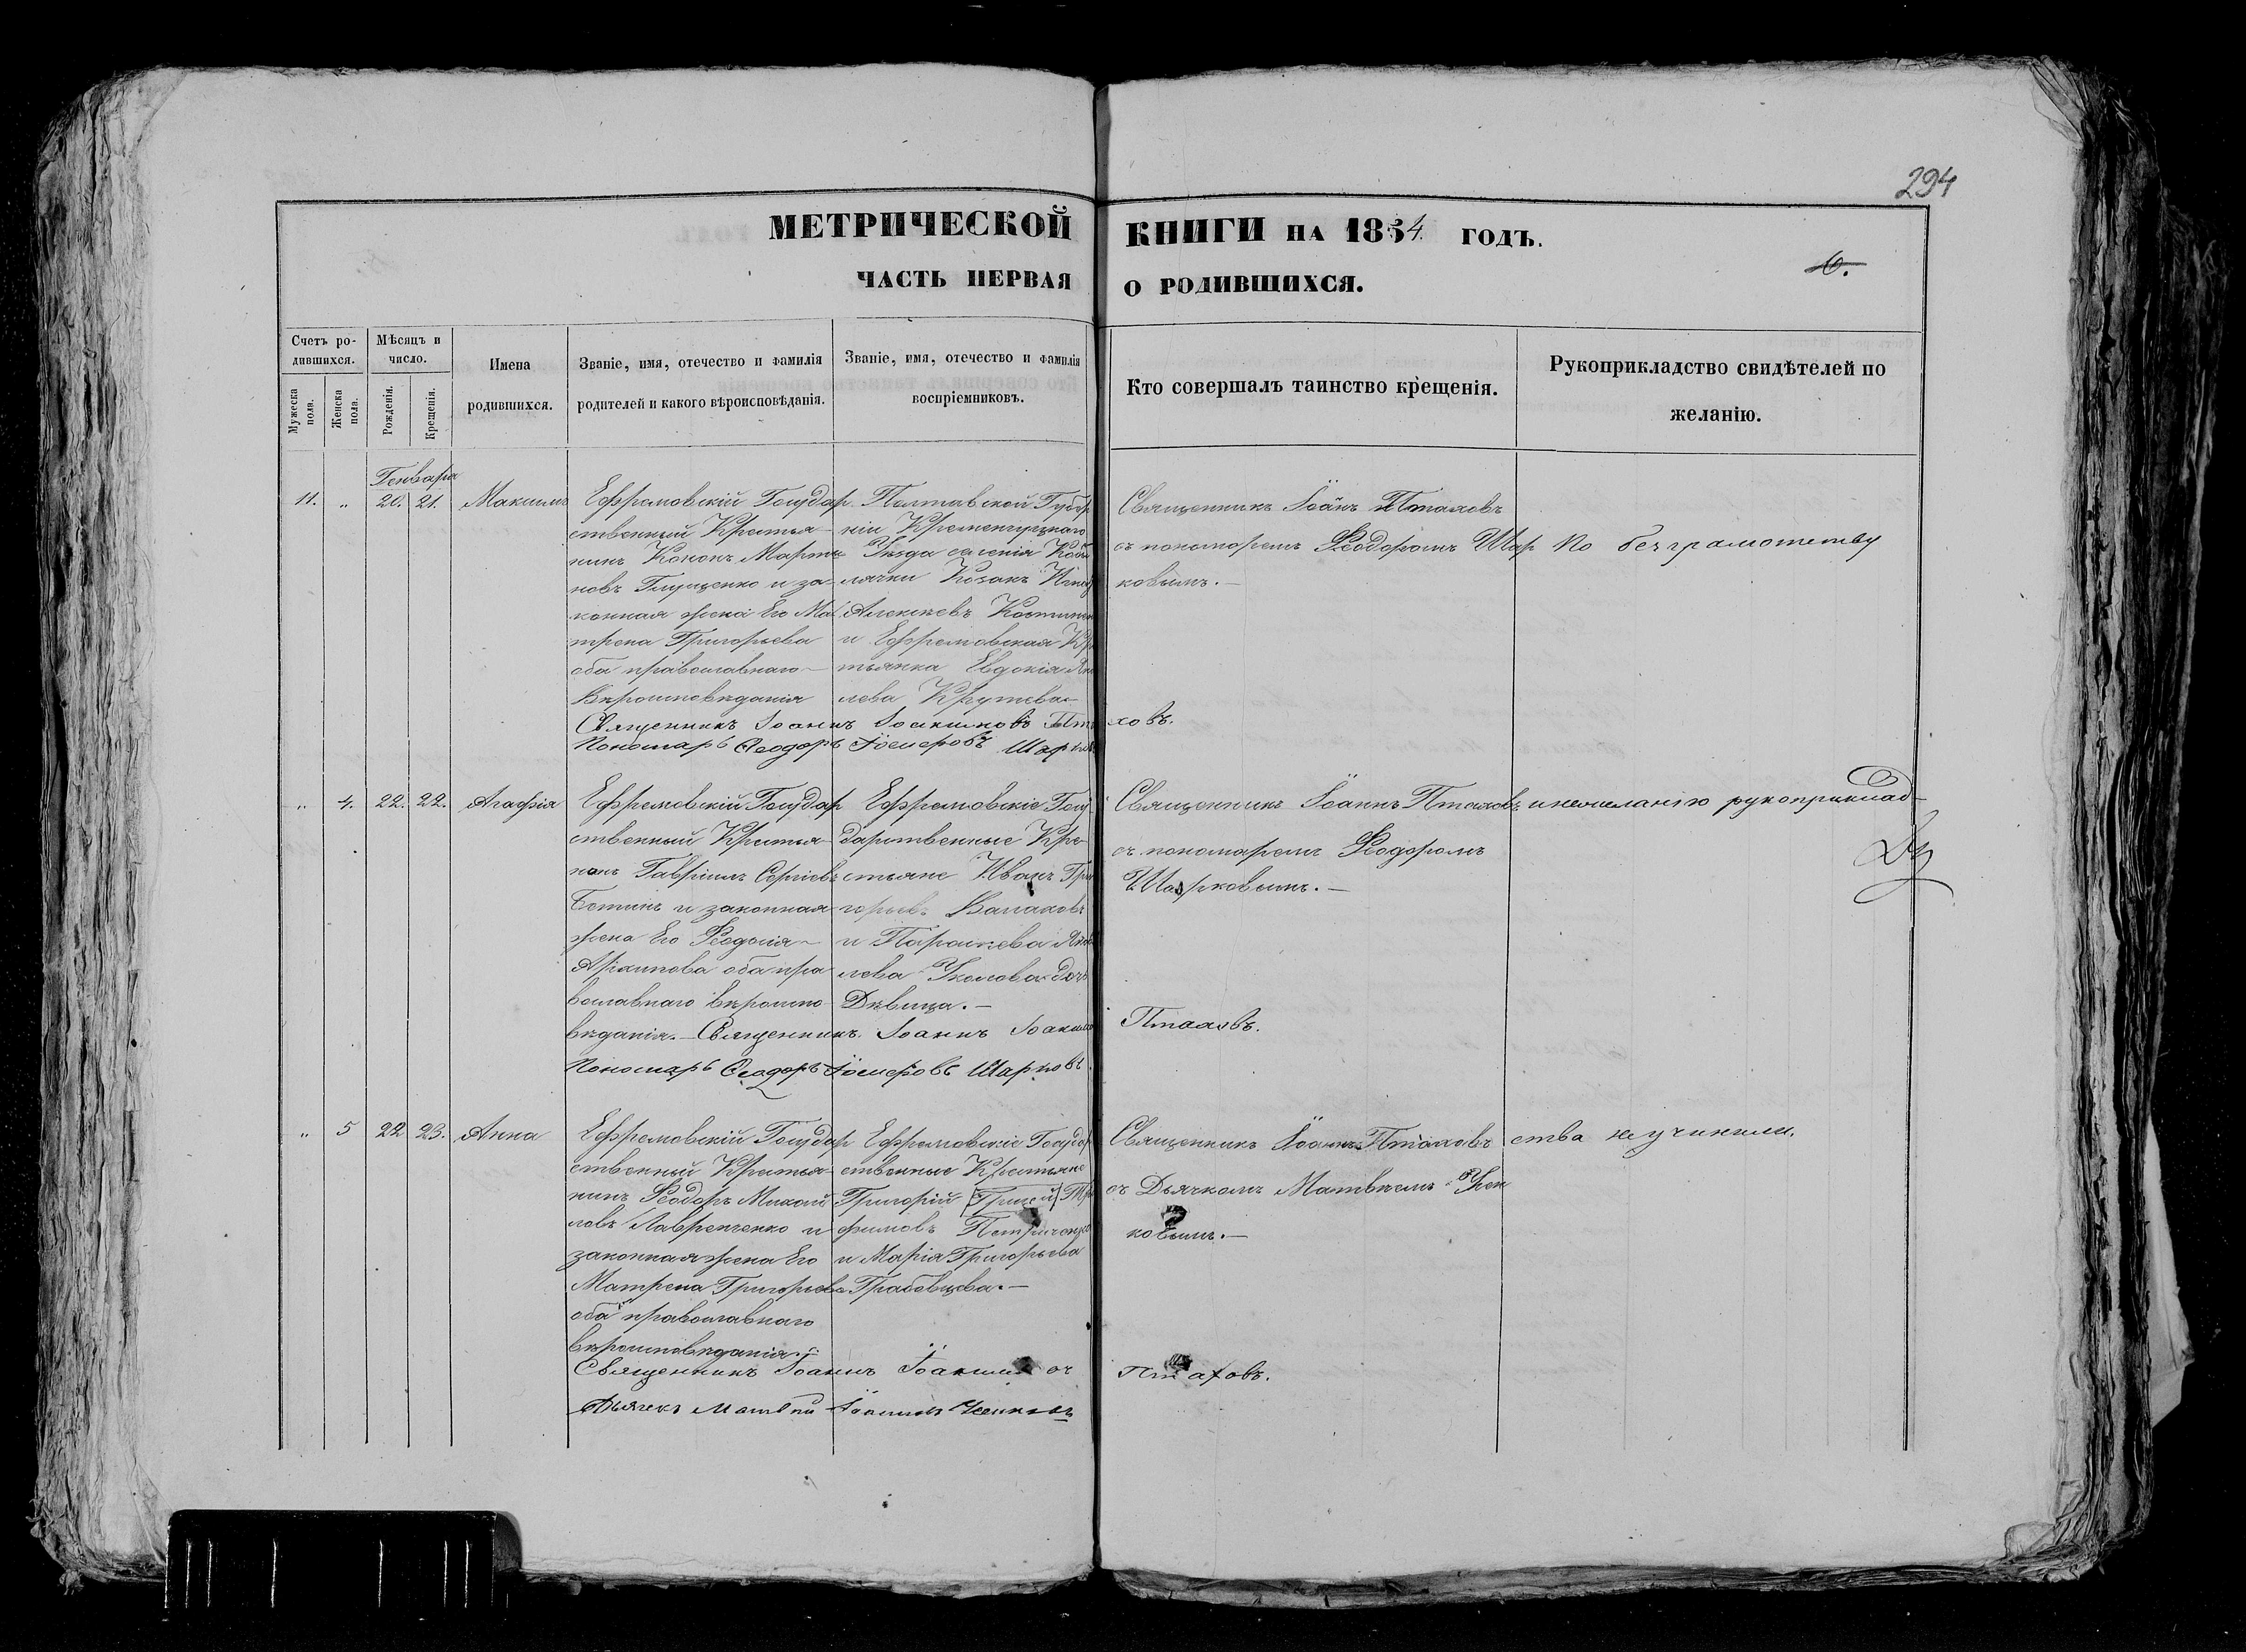 294
МЕТРИЧЕСКОЙ КНИГИ НА 1854 ГОДЪ.
6.
ЧАСТЬ ПЕРВАЯ О РОДИВШИХСЯ.
Счетъ ро-
дившихся.
Мужеска
пола.
Женска
пола.
Мѣсяцъ и
число.
Рожденія.
Крещенія.
Имена
родившихся.
Званіе, имя, отечество и фамилія
родителей и какого вѣроисповѣданія.
Званіе, имя, отечество и фамилія
воспріемниковъ.
Кто совершалъ таинство крещенія.
Рукоприкладство свидѣтелей по
желанію.
Генваря
11. „ 20. 21. Максимъ
Ефремовскій Государ
ственный Крестья-
нинъ Кононъ Марти
новъ Глущенко и за-
конная жена Его Ма
трена Григорьева
оба православнаго
Вѣроисповѣданія
Полтавской Губер
ніи Кременчугскаго
Уѣзда селенія
Козакъ
Алексѣевъ
и Ефремовская Кре
стьянка Евдокія
лева Крутева
Священникъ Іоаннъ Птаховъ
съ пономаремъ Ѳеодоромъ Шар
ковымъ.
По безграмотству
Священникъ Іоаннъ Іоакимовъ Птаховъ.
Пономарь Ѳеодоръ Шарковъ
„ 4. 22. 22. Агафія
Ефремовскій Государ
ственный Крестья
нинъ Гавріилъ Сергіевъ
и законная
жена Его Ѳеодосія
Архипова оба пра
вославнаго вѣроиспо
вѣданія.
Ефремовскіе Госу
дарственные Кре-
стьяне Иванъ Гри
горьевъ
и Параскева Яков
лева дочь
Дѣвица.
Священникъ Іоаннъ Птаховъ
съ пономаремъ Ѳеодоромъ
Шарковымъ.
и нежеланію рукоприклад-
Священникъ Іоаннъ Іоакимо Птаховъ.
Пономарь Ѳеодоръ Шарковъ
„ 5 22 23. Анна
Ефремовскій Государ
ственный Крестья-
нинъ Ѳеодоръ Михай
ловъ Лавренченко и
законная жена Его
Матрена Григорьева
оба православнаго
вѣроисповѣданія.
Ефремовскіе Государ
ственные Крестьяне
Григорій Тро
фимовъ
и Марія Григорьева
Грабовцева.
Священникъ Іоаннъ Птаховъ
съ Дьячкомъ Матвѣемъ
ковымъ.
ства неучинили.
Священникъ Іоаннъ Птаховъ.
Дьячекъ Матвѣй